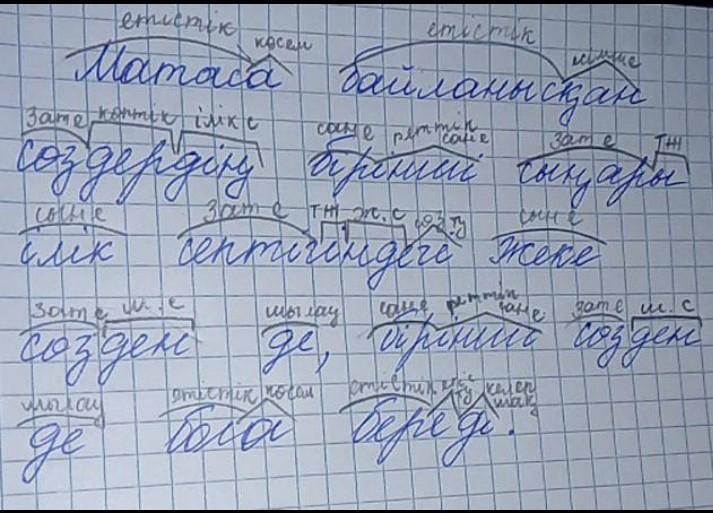 етістік көсем етістік есімше
Матаса байланысқан
Зат е көптік ілік с сан е реттік сан е зат е ТЖ
сөздердің бірінші сыңары
сын е Зат е ТЖ ж.с сөз.тұ сын е
ілік септігіндегі жеке
Зат е ш.с шылау сан е реттік сан е зат е ш.с
сөзден де, бірінші сөзден
шылау етістік көсем етістік келер шақ
де бола береді.